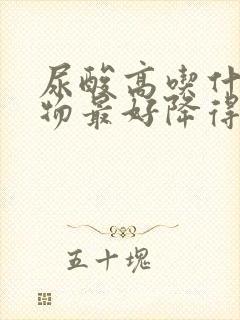 尿酸高喫什
物最好降得
五十塊